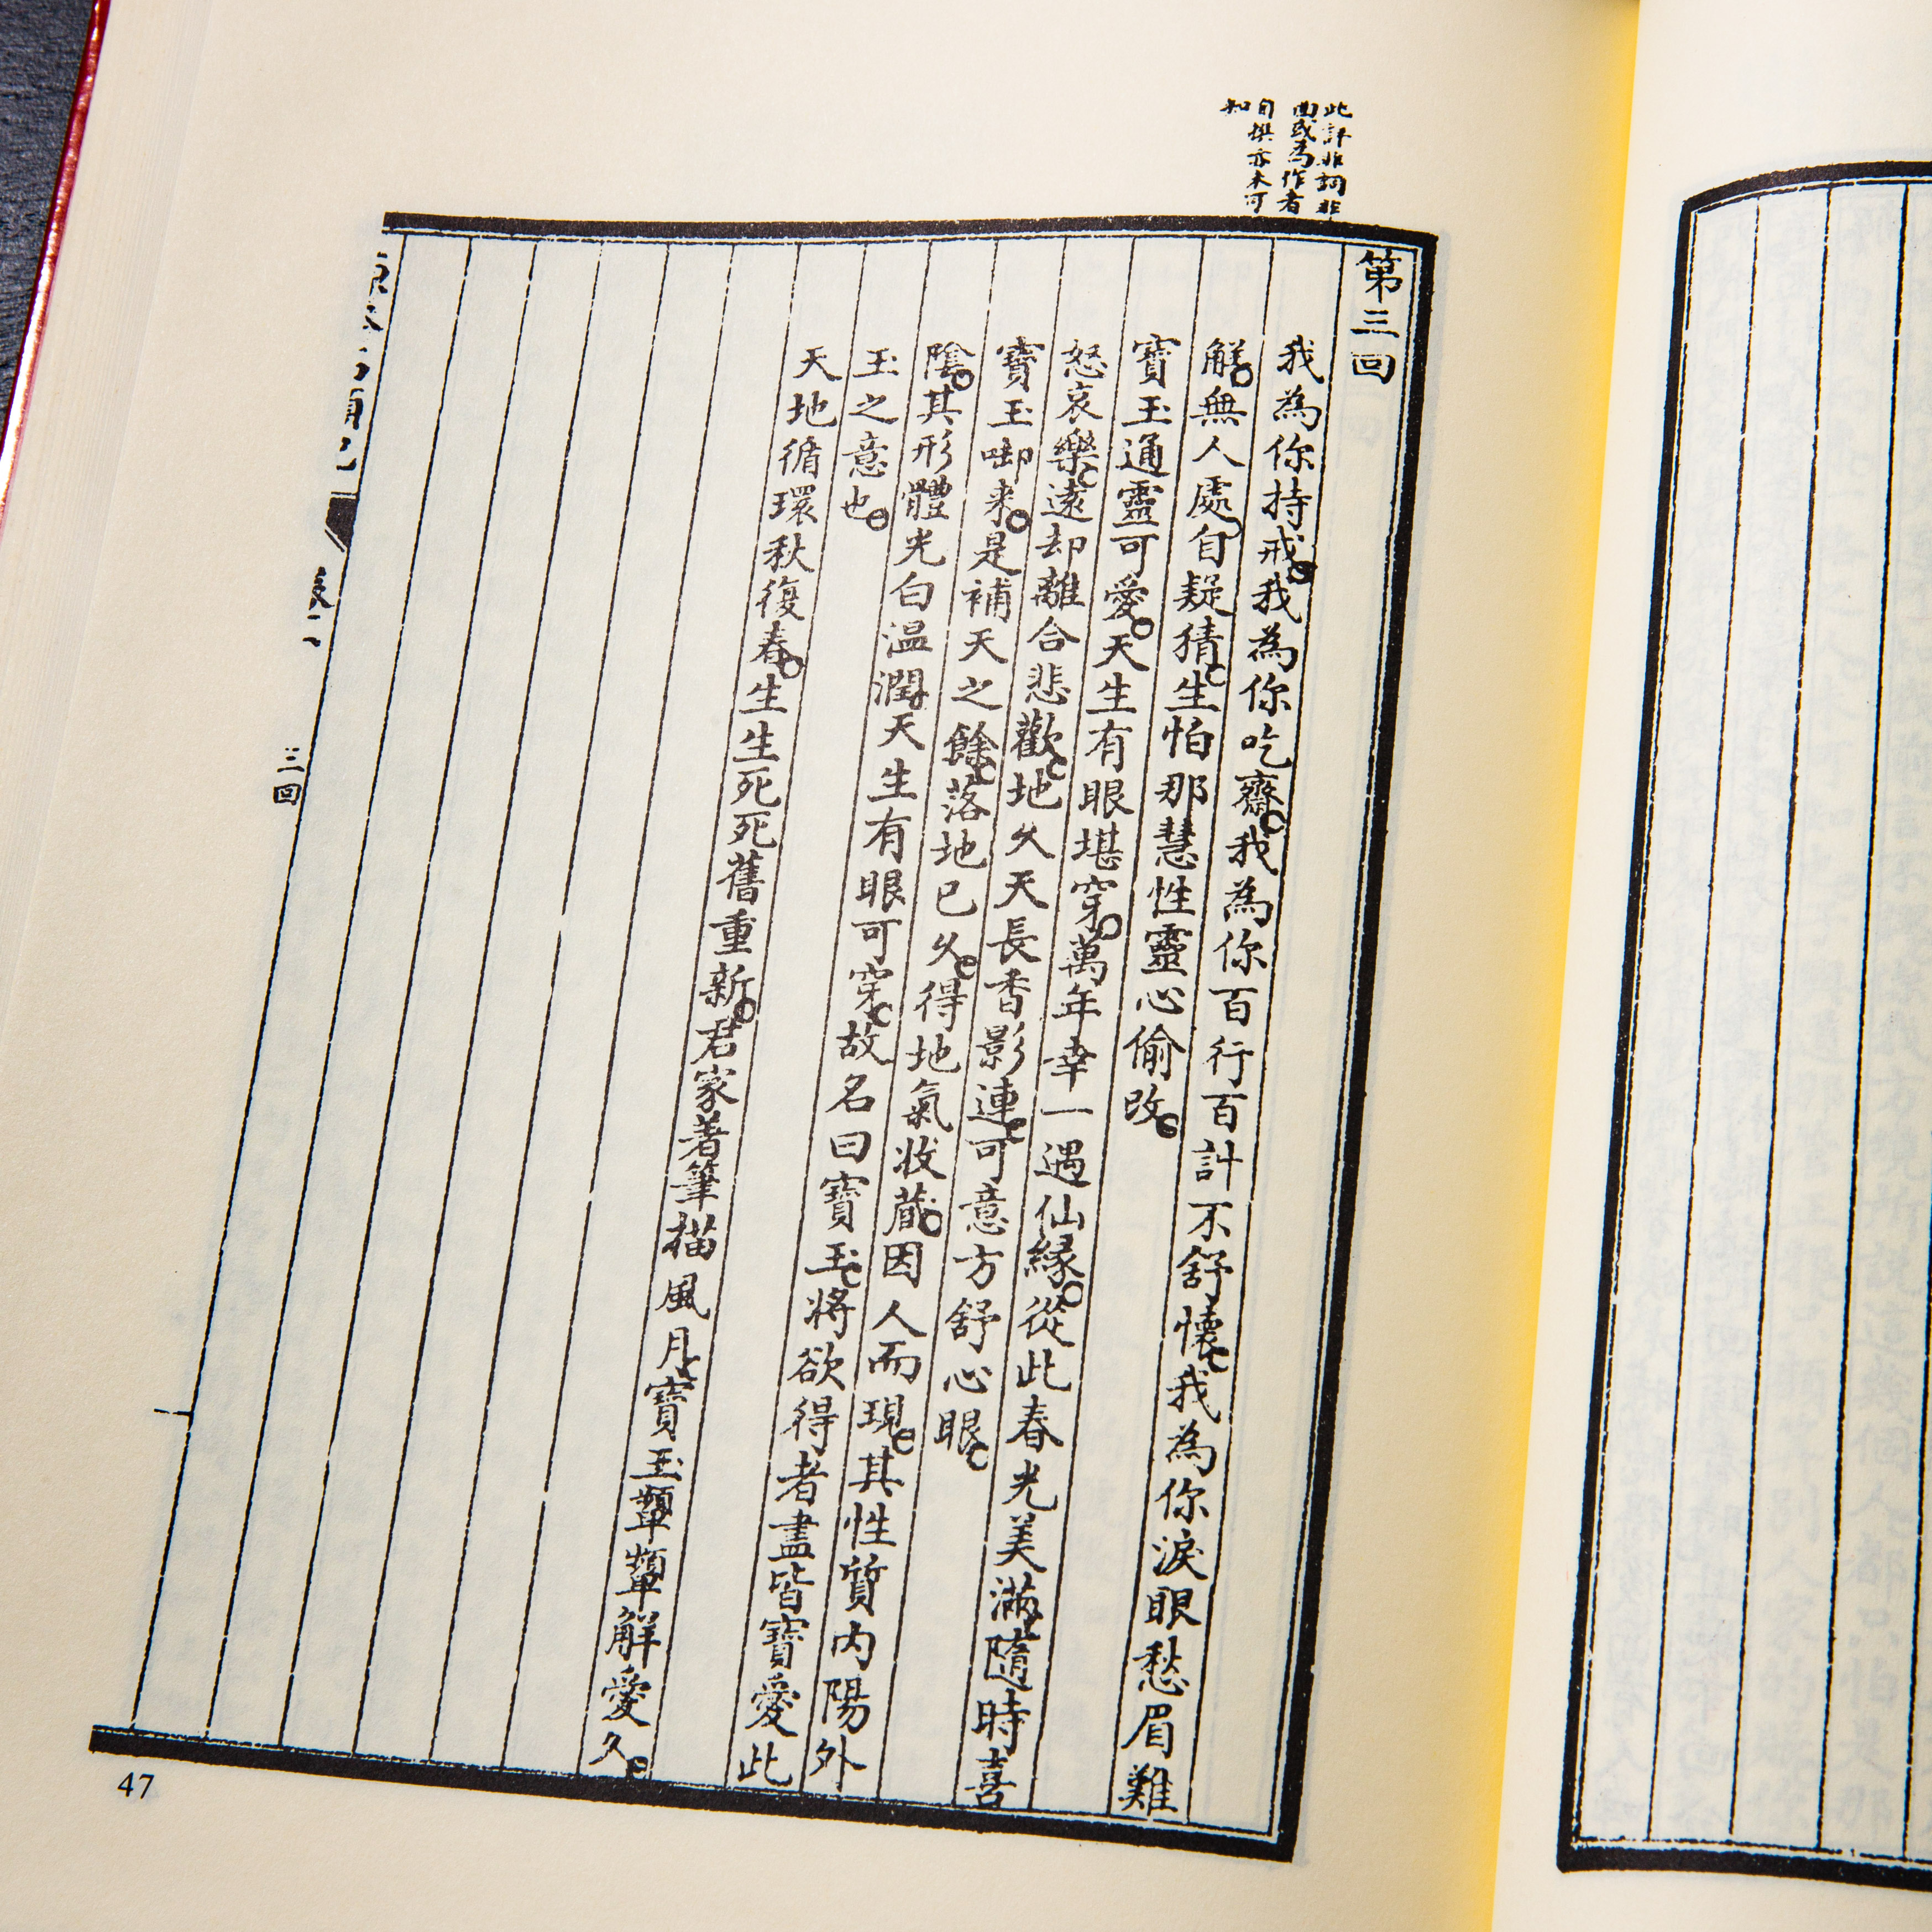 此評非詞非
曲或為作者
自撰亦未可
知
第三回
我為你持戒。我為你吃齋。我為你百行百計不舒懷。我為你淚眼愁眉難
解。無人處。自疑猜。生怕那慧性靈心偷改。
寶玉通靈可愛。天生有眼堪穿。萬年幸一遇仙緣。從此春光美滿。隨時喜
怒哀樂。遠却離合悲歡。地久天長香影連。可意方舒心眼。
寶玉啣来。是補天之餘。落地已久。得地氣收藏。因人而現。其性質內陽外
陰。其形體光白温潤。天生有眼可穿。故名曰寶玉。將欲得者盡皆寶愛此
玉之意也。
天地循環秋復春。生生死死舊重新。君家著筆描風月。寶玉顰顰解愛久。
三回
47